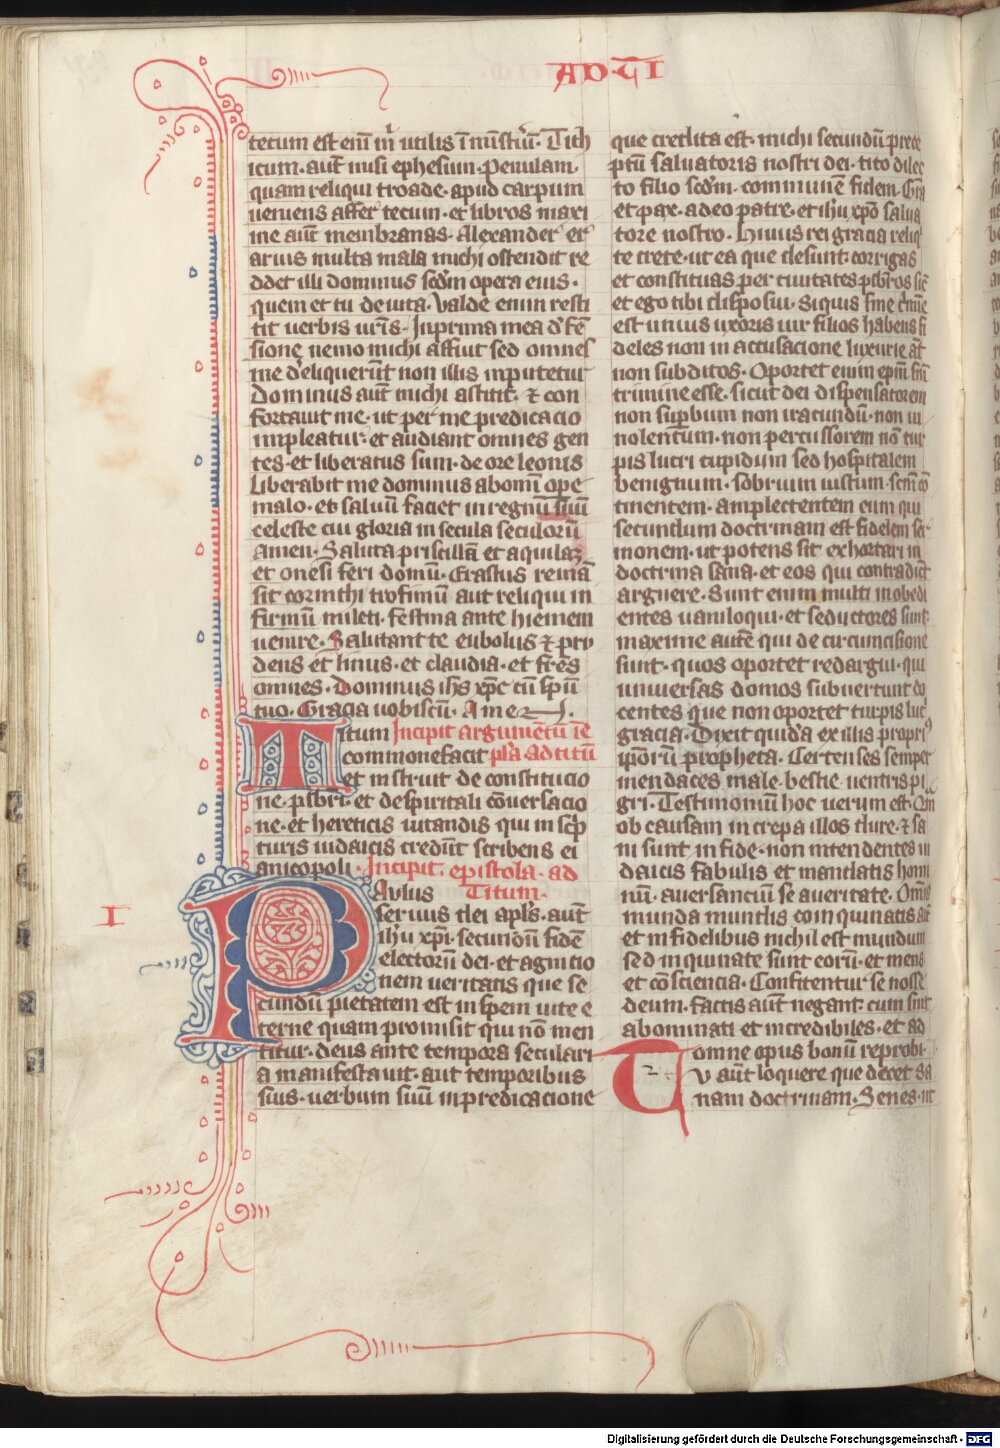 AD·TI
tecum est eni m utilis i ministiu. Tich
icum. aut misi ephesum. Penulam
quam reliqui troade. apud carpum
ueniens affer tecum. et libros maxi
me aut membranas. Alexander er
arius multa mala michi ostendit re
ddet illi dominus scdm opera eius.
quem et tu deuita. Valde enim resti
tit uerbis uris. In prima mea defe
sione nemo michi affuit sed omnes
me deliquerut non illis inputetur
Dominus aut michi astitit. et con
fortauit me. ut per me predicacio
impleatur. et audiant omnes gen
tes. et liberatus sum. de ore leonis
Liberabit me dominus ab omni ope
malo. et saluu faciet in regnu suu
celeste cui gloria in secula seculoru
Amen. Saluta priscilla et aquilaz
et onesiferi domu. Erastus rema
sit corinthi trofimu aut reliqui in
firmu mileti. festina ante hiemem
uenire. Salutant te eubolus et pru
dens et linus. et claudia. et fres
omnes. Dominus ihs xpc cu spu
tuo. Gracia uobiscu. Amen.
Titum Incipit argumentu ie
commonefacit pla ad titu
et instruit de constitucio
ne. psbri. et de spiritali couersacio
ne. et hereticis uitandis qui in scp
turis iudaicis credut scribens ei
a nicopoli. Incipit epistola ad
Paulus Titum.
seruus dei apls. aut
ihu xpi. secundu fide
electoru dei. et agnitio
nem ueritatis que se
cundu pietatem est in spem uite e
terne quam promisit qui no men
titur. deus ante tempora seculari
a manifestauit. aut temporibus
suis. uerbum suu in predicacione
I
que credita est. michi secundu prece
ptu saluatoris nostri dei. tito dilec
to filio scdm. commune fidem. Gra
et pax. a deo patre. et ihu xpo salua
tore nostro. Huius rei gracia reliq
te crete. ut ea que desunt. corrigas
et constituas per ciuitates psbros sic
et ego tibi disposui. Si quis sine crime
est unius uxoris uir filios habens fi
deles non in accusacione luxurie aut
non subditos. Oportet enim epm sine
crimine esse. sicut dei dispensatorem
non supbum non iracundu. non ui
nolentum. non percussorem no tur
pis lucri cupidum sed hospitalem
benignum. sobrium iustum. scm co
tinentem. amplectentem eum qui
secundum doctrinam est fidelem ser
monem. ut potens sit exhortari in
doctrina sana. et eos qui contradicut
arguere. Sunt enim multi inobedi
entes uaniloqui. et seductores sunt.
maxime autem qui de circumcisione
sunt. quos oportet redargui. qui
uniuersas domos subuertunt do
centes que non oportet turpis lucri
gracia. Dixit quida ex illis propri
iporu propheta. Cretenses semper
mendaces male. bestie. uentris pi
gri. Testimoniu hoc uerum est. Qm
ob causam increpa illos dure. et sa
ni sint in fide. non intendentes iu
daicis fabulis et mandatis homi
nu. auersanciu se a ueritate. Omnia
munda mundis coinquinatis aut
et infidelibus nichil est mundum
sed inquinate sunt eoru. et mens
et cosciencia. Confitentur se nosse
deum. factis aut negant. cum sint
abominati et incredibiles. et ad
omne opus bonu reprobi
2 Tu aut loquere que decet sa
nam doctrinam. Senes. ut
Digitalisierung gefördert durch die Deutsche Forschungsgemeinschaft - DFG